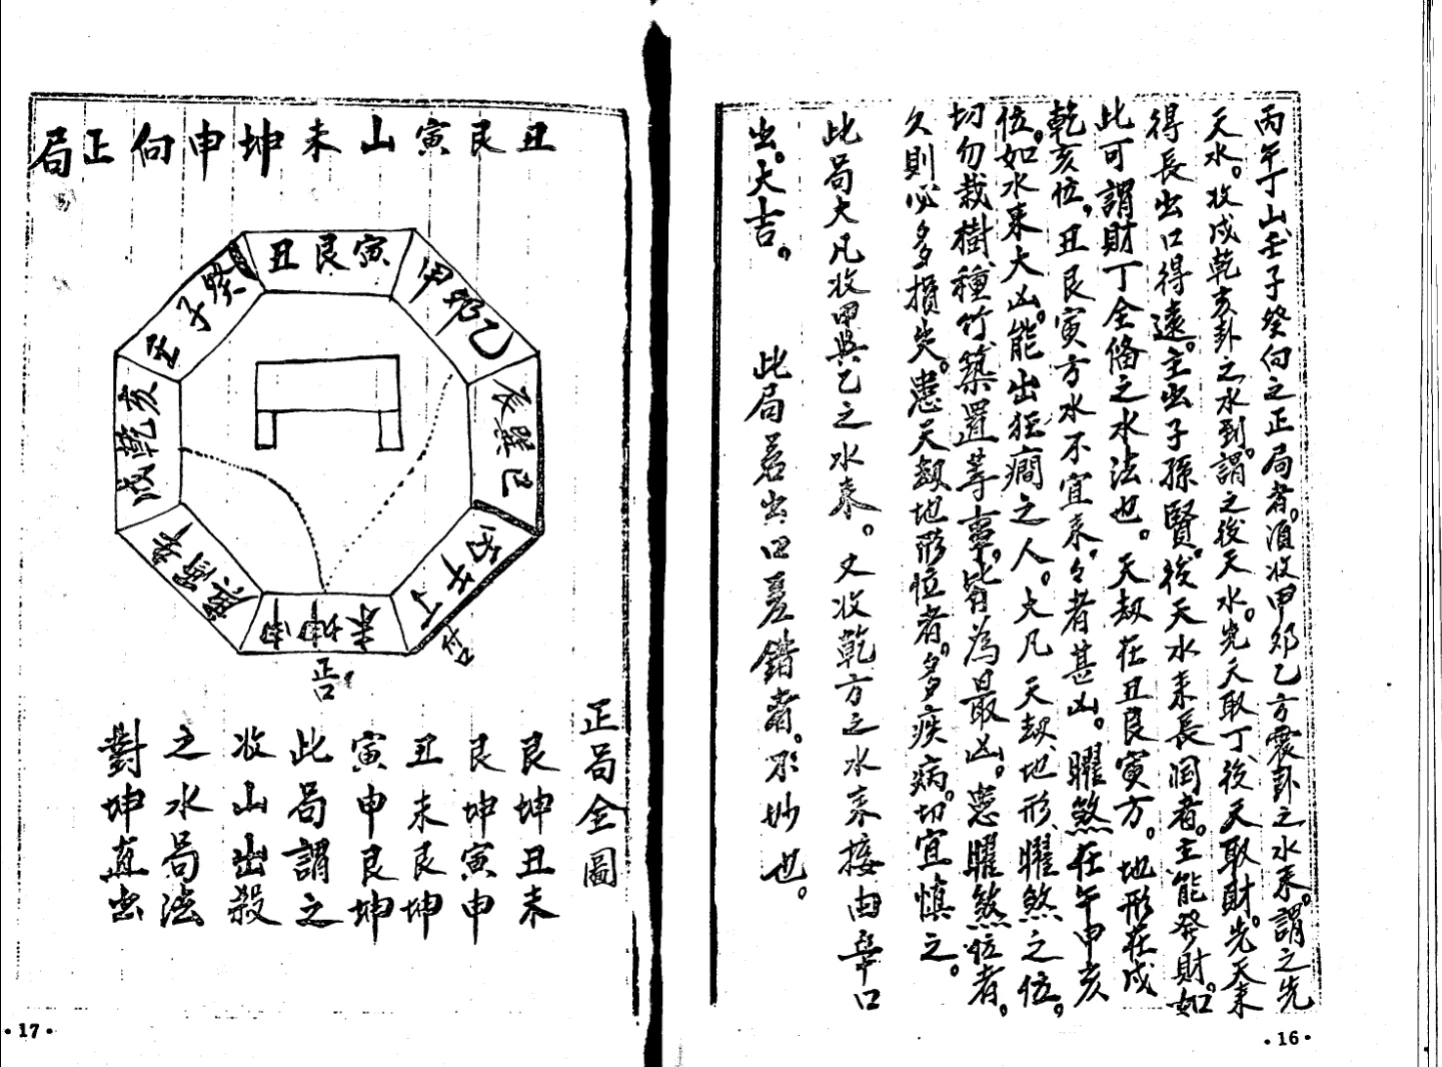 丙午丁山壬子癸向之正局者。須收甲卯乙方震卦之水來。謂之先
天水。收戌乾亥卦之水到。謂之後天水。先天取丁、後天取財。先天來
得長出口得遠。主出子孫賢。後天水來長潤者。主能發財。如
此可謂財丁全備之水法也。天刼在丑艮寅方。地形在戌
乾亥位。丑艮寅方水不宜來。々者甚凶。曜煞在午申亥
位。如水來大凶。能出狂癇之人。大凡天刼、地形、曜煞之位。
切勿栽樹、種竹、築置等事。皆為最凶。患曜煞位者。
久則必多損失。患天刼地形位者。多多疾病。切宜慎之。
此局大凡收甲與乙之水來。又收乾方之水來接由辛口
出。大吉。 此局若出口差錯者。不妙也。
·16·
丑艮寅山未坤申向正局
丑艮寅
甲卯乙
辰巽巳
丙午丁
未坤申
庚酉辛
戌乾亥
壬子癸
正口
正局金圖
艮坤丑未
艮坤寅申
丑未艮坤
寅申艮坤
此局謂之
收山出殺
之水局法
對坤直出
·17·